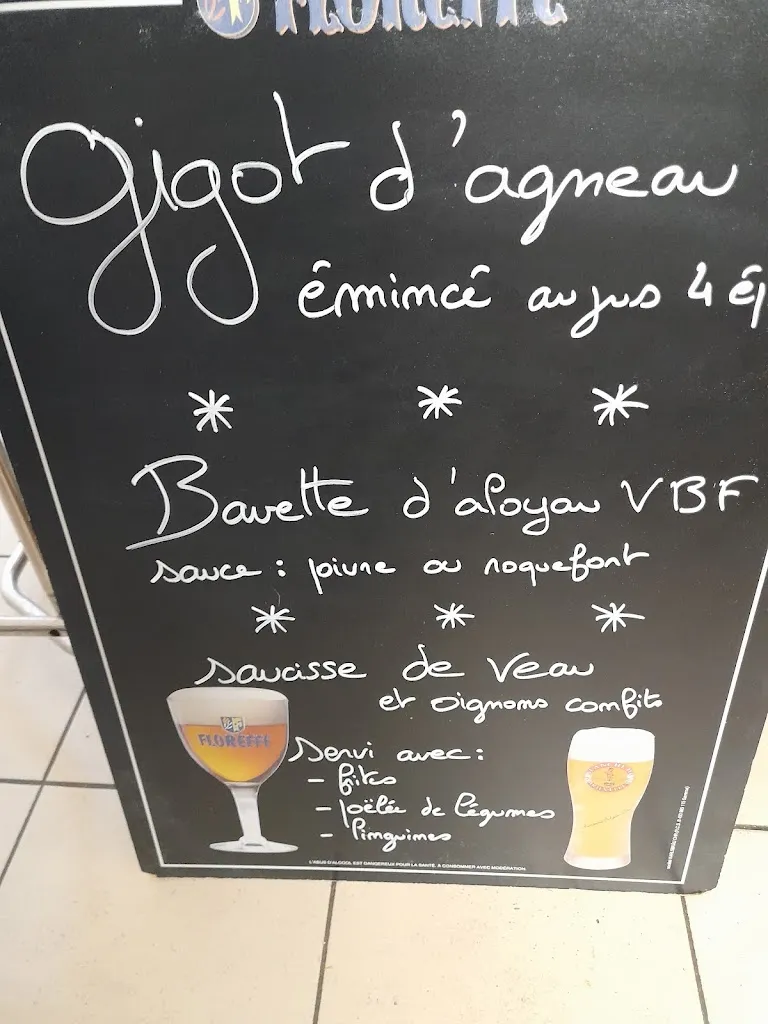 FLOREFFE
Gigot d'agneau
émincé au jus 4 ép
* * *
Bavette d'aloyau VBF
sauce : poivre ou roquefort
* * *
saucisse de veau
et oignons confits
FLOREFFE
Servi avec :
- fites
- poëlée de légumes
- linguines
L'ABUS D'ALCOOL EST DANGEREUX POUR LA SANTÉ. À CONSOMMER AVEC MODÉRATION.